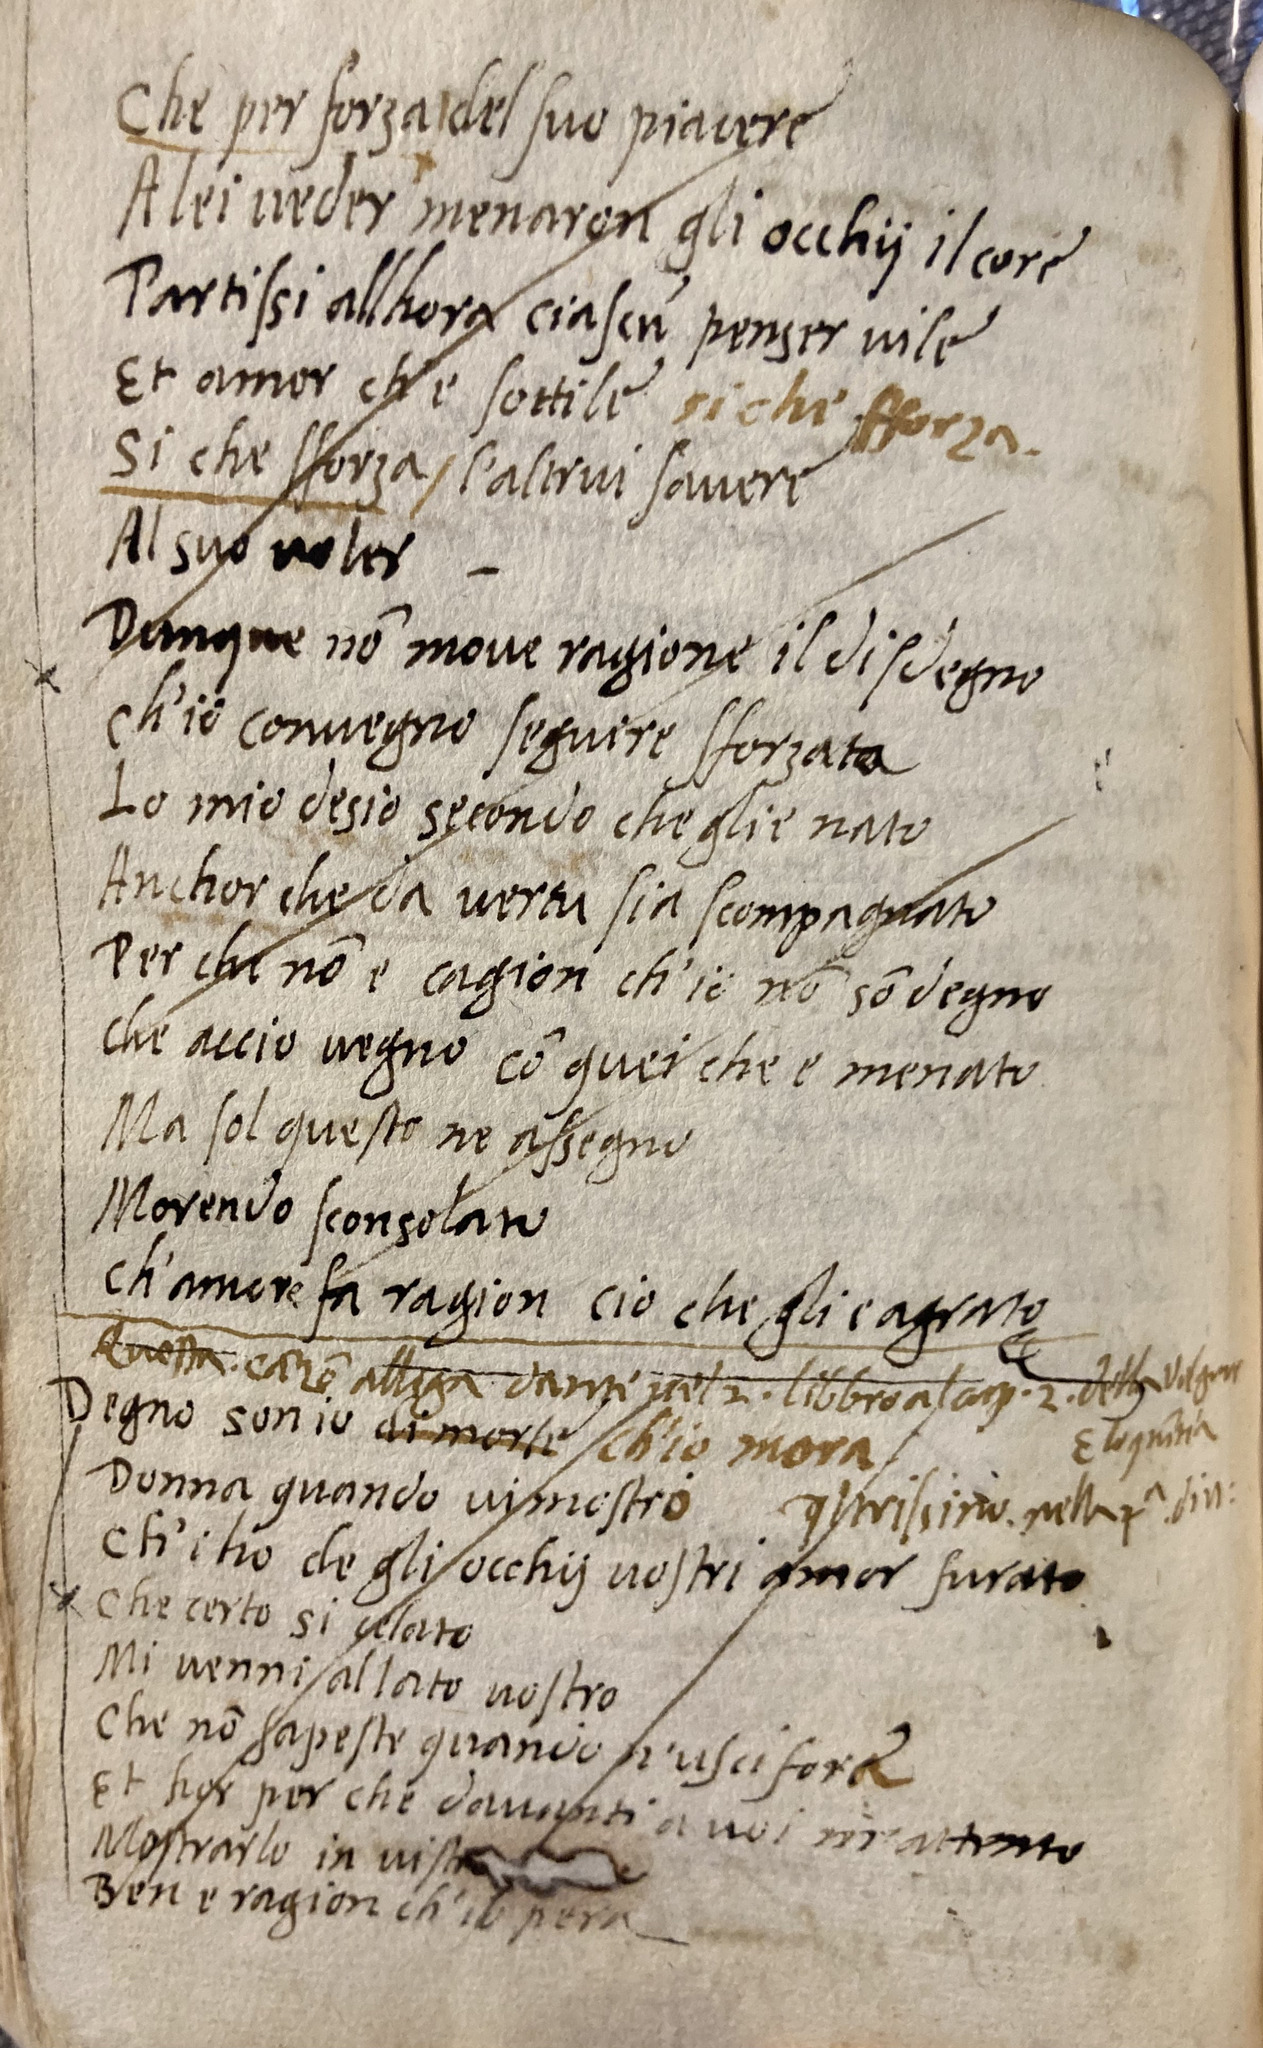 Che per forza del suo piacere
A lei ueder menaron gli occhij il core
Partissi allhora ciascũ penser uile
Et amor ch e sottile si che sforza.
Si che sforza / l'altrui sauere
Al suo uoler –
Dunque nõ moue ragione il disdegno
Ch'io conuegno seguire sforzata
Lo mio desio secondo che glie nato
Anchor che da uertu sia scompagnato
Per che nõ e cagion ch'io nõ sõ degno
Che accio uegno cõ quei che e menato
Ma sol questo ne assegno
Morendo sconsolato
Ch'amore fa ragion cio che gli e agrato
Questa canzõ allega dante nel 2. libbro al cap. 2. della Volgare
Eloquẽtia
Degno son io di morte ch'io mora
Donna quando ui mostro
trissino. nella pª. diu:
Ch'i ho de gli occhij uostri amor furato
Che certo si celato
Mi uenni allato uostro
Che nõ sapeste quando n'usci fora
Et hor per che dauanti a uoi attento
Mostrarlo in uista
Ben e ragion ch'io pera